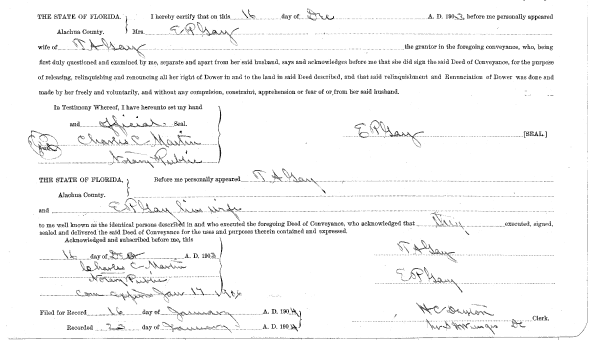 THE STATE OF FLORIDA, I hereby certify that on this 16 day of Dec A. D. 1903, before me personally appeared
Alachua County. Mrs. E P Gay
wife of T A Gay the grantor in the foregoing conveyance, who, being
first duly questioned and examined by me, separate and apart from her said husband, says and acknowledges before me that she did sign the said Deed of Conveyance, for the purpose
of releasing, relinquishing and renouncing all her right of Dower in and to the land in said Deed described, and that said relinquishment and Renunciation of Dower was done and
made by her freely and voluntarily, and without any compulsion, constraint, apprehension or fear of or from her said husband.
In Testimony Whereof, I have hereunto set my hand
and official Seal.
Charles C. Martin E P Gay [SEAL]
Notary Public
THE STATE OF FLORIDA, Before me personally appeared T A Gay
Alachua County.
and E P Gay his wife
to me well known as the identical persons described in and who executed the foregoing Deed of Conveyance, who acknowledged that they executed, signed,
sealed and delivered the said Deed of Conveyance for the uses and purposes therein contained and expressed.
Acknowledged and subscribed before me, this
16 day of Dec A. D. 1903 T A Gay
Charles C. Martin
Notary Public E P Gay
Com expires Jan 17 1906
Filed for Record 16 day of January A. D. 1904 H C Denton Clerk.
Recorded 22 day of January A. D. 1904 DC